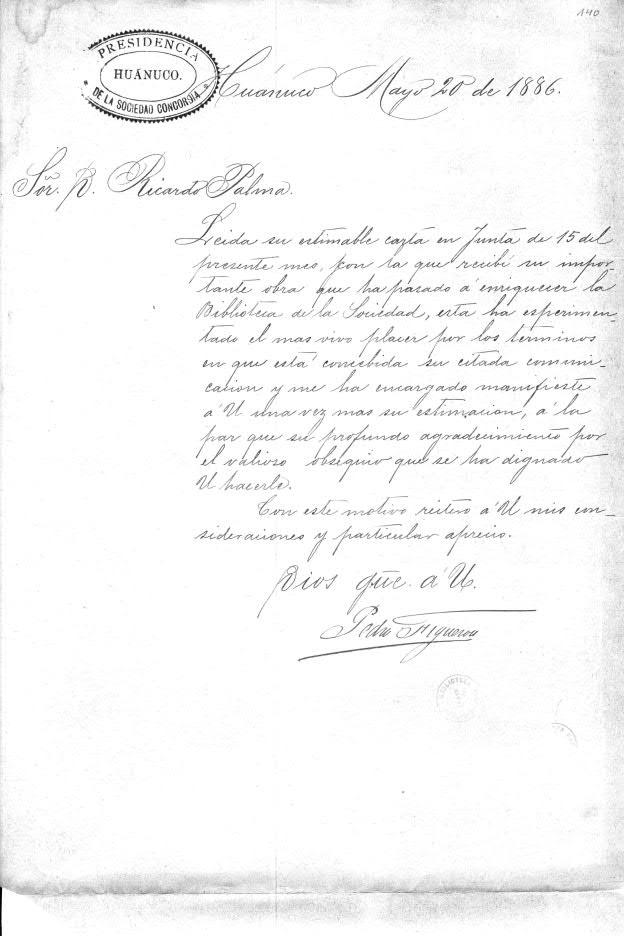 140
PRESIDENCIA
HUÁNUCO.
DE LA SOCIEDAD CONCORDIA
Huánuco Mayo 20 de 1886.
Sõr. D. Ricardo Palma.
Leida su estimable carta en Junta de 15 del
presente mes, con la que recibí su impor-
tante obra que ha pasado á enriquecer la
Biblioteca de la Sociedad, esta ha esperimen-
tado el mas vivo placer por los términos
en que está concebida su citada comuni-
cacion y me ha encargado manifieste
á U una vez mas su estimacion, á la
par que su profundo agradecimiento por
el valioso obsequio que se ha dignado
U hacerle.
Con este motivo reitero á U mis con-
sideraciones y particular aprecio.
Dios gũe. á U.
Pedro Figueroa
BIBLIOTECA